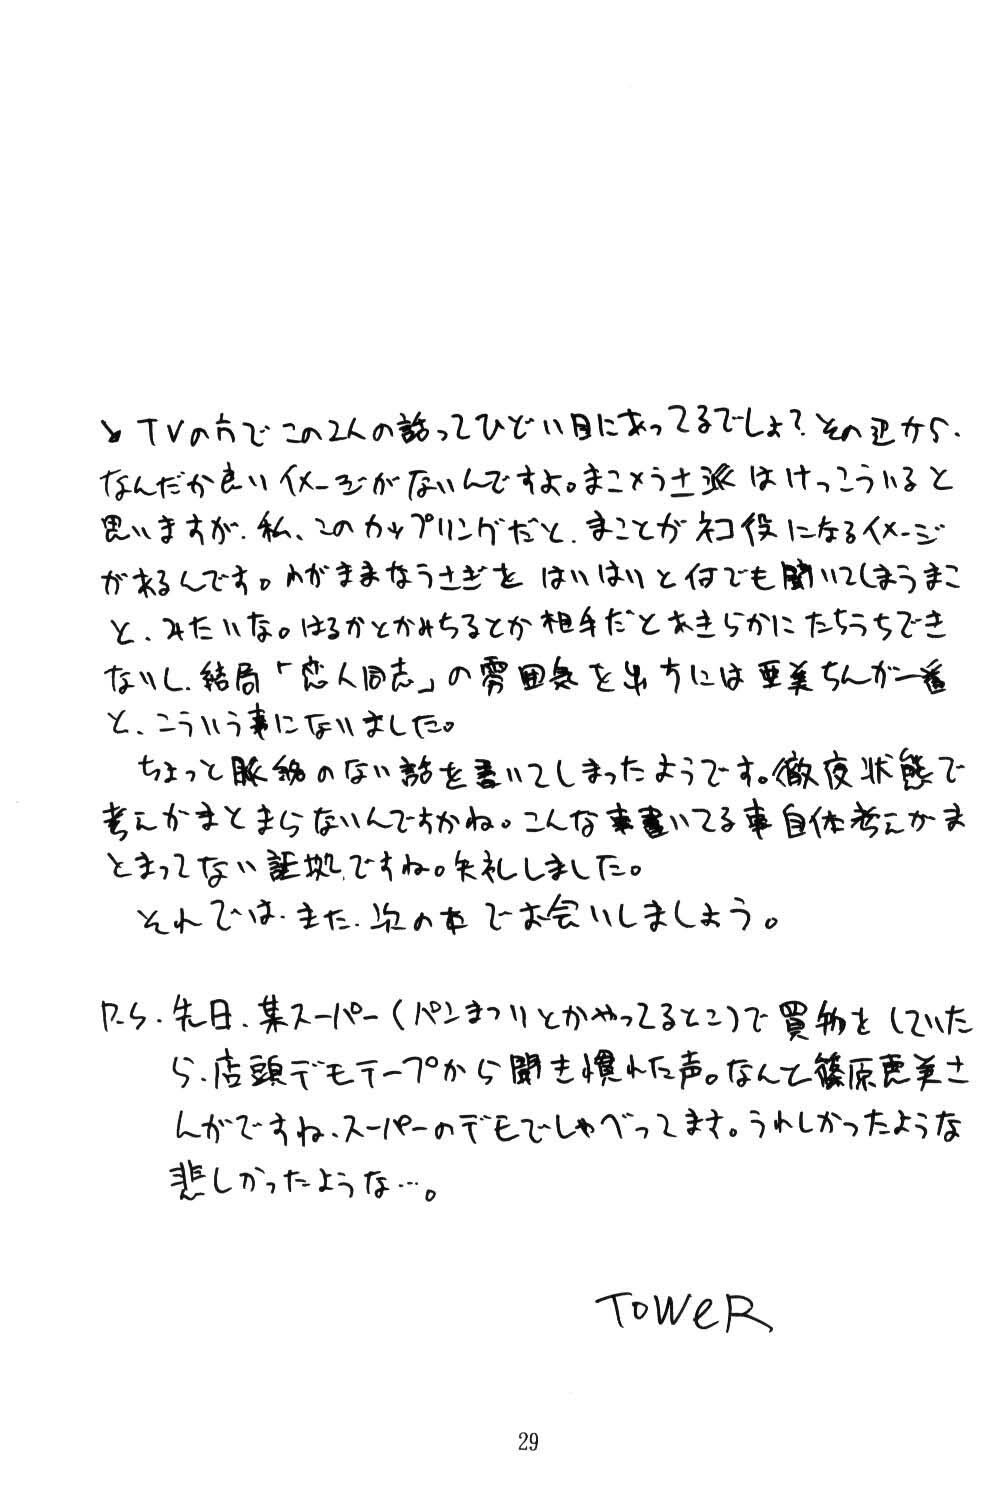 ↘TVの方でこの2人の話ってひどい目にあってるでしょ?その辺から、
なんだか良いイメージがないんですよ。まこ×うさ派はけっこういると
思いますが、私、このカップリングだと、まことがネコ役になるイメージ
があるんです。わがままなうさぎを はいはいと何でも聞いてしまうまこ
と、みたいな。はるかとかみちるとか相手だとあきらかにたちうちでき
ないし、結局「恋人同志」の雰囲気を出すには亜美ちんが一番
と、こういう事になりました。
ちょっと脈絡のない話を書いてしまったようです。徹夜状態で
考えがまとまらないんですかね。こんな事書いてる事自体考えがま
とまってない証拠ですね。失礼しました。
それでは、また、次の本でお会いしましょう。
P.S. 先日、某スーパー(パンまつりとかやってるとこ)で買物をしていた
ら、店頭デモテープから聞き慣れた声。なんと篠原恵美さ
んがですね、スーパーのデモでしゃべってます。うれしかったような
悲しかったような…。
TOWeR
29